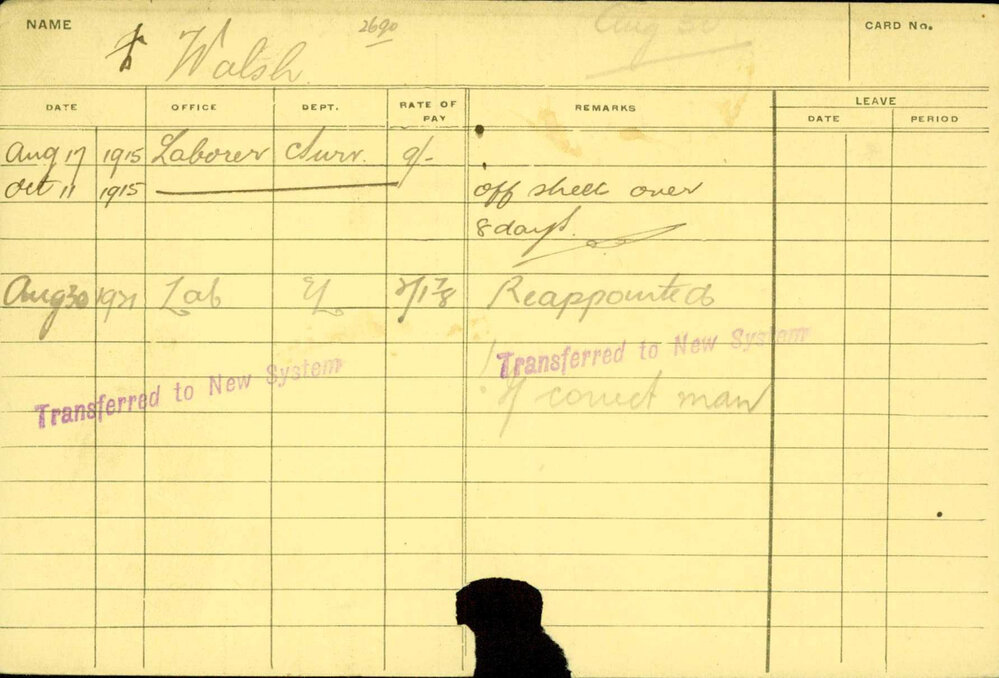 NAME
2690
Aug 30
CARD No.
Walsh
DATE OFFICE DEPT. RATE OF PAY REMARKS LEAVE
DATE PERIOD
Aug 17 1915 Laborer Surv. 9/-
Oct 11 1915 off sheet over
8 days.
Aug 30 1921 Lab Reappointed
Transferred to New System
Transferred to New System
If correct man